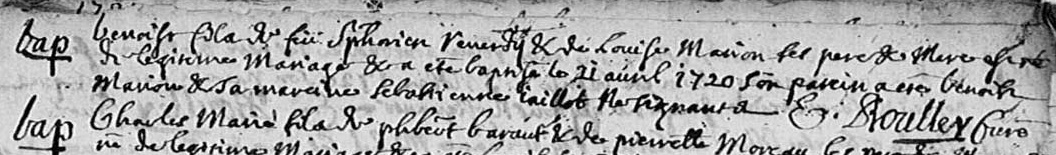 bap benoist fils de feu Sphorien Venerdy & de Louise Marion ses pere & Mere
de legitime Mariage & a ete baptisé le 21 avril 1720 son parein a ete benoist
Marion & sa mareine sebastienne taillot No signants E. Roulley Curé
bap Charles Marie fils de phbert baraut & de pierrette Moreau
de legitime Mariage